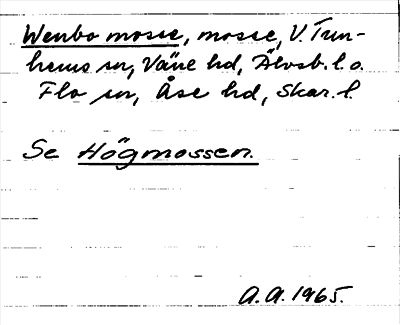 Wenbo mosse, mosse, V. Tun-
hems sn, Väne hd, Älvsb. l. o.
Flo sn, Åse hd, Skar. l.
Se Högmossen.
A. A. 1965.